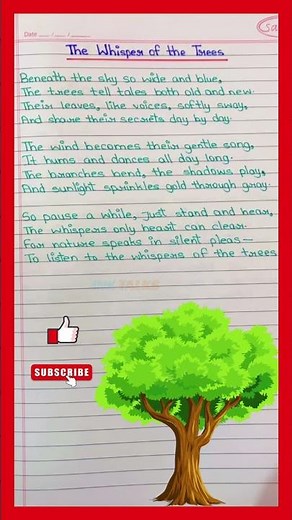 Date __/__/____
Sa
The Whisper of the Trees
Beneath the sky so wide and blue,
The trees tell tales both old and new.
Their leaves, like voices, softly sway,
And share their secrets day by day.
The wind becomes their gentle song,
It hums and dances all day long.
The branches bend, the shadows play,
And sunlight sprinkles gold through gray.
So pause a while, just stand and hear,
The whispers only heart can clear.
For nature speaks in silent pleas—
To listen to the whispers of the trees
SUBSCRIBE